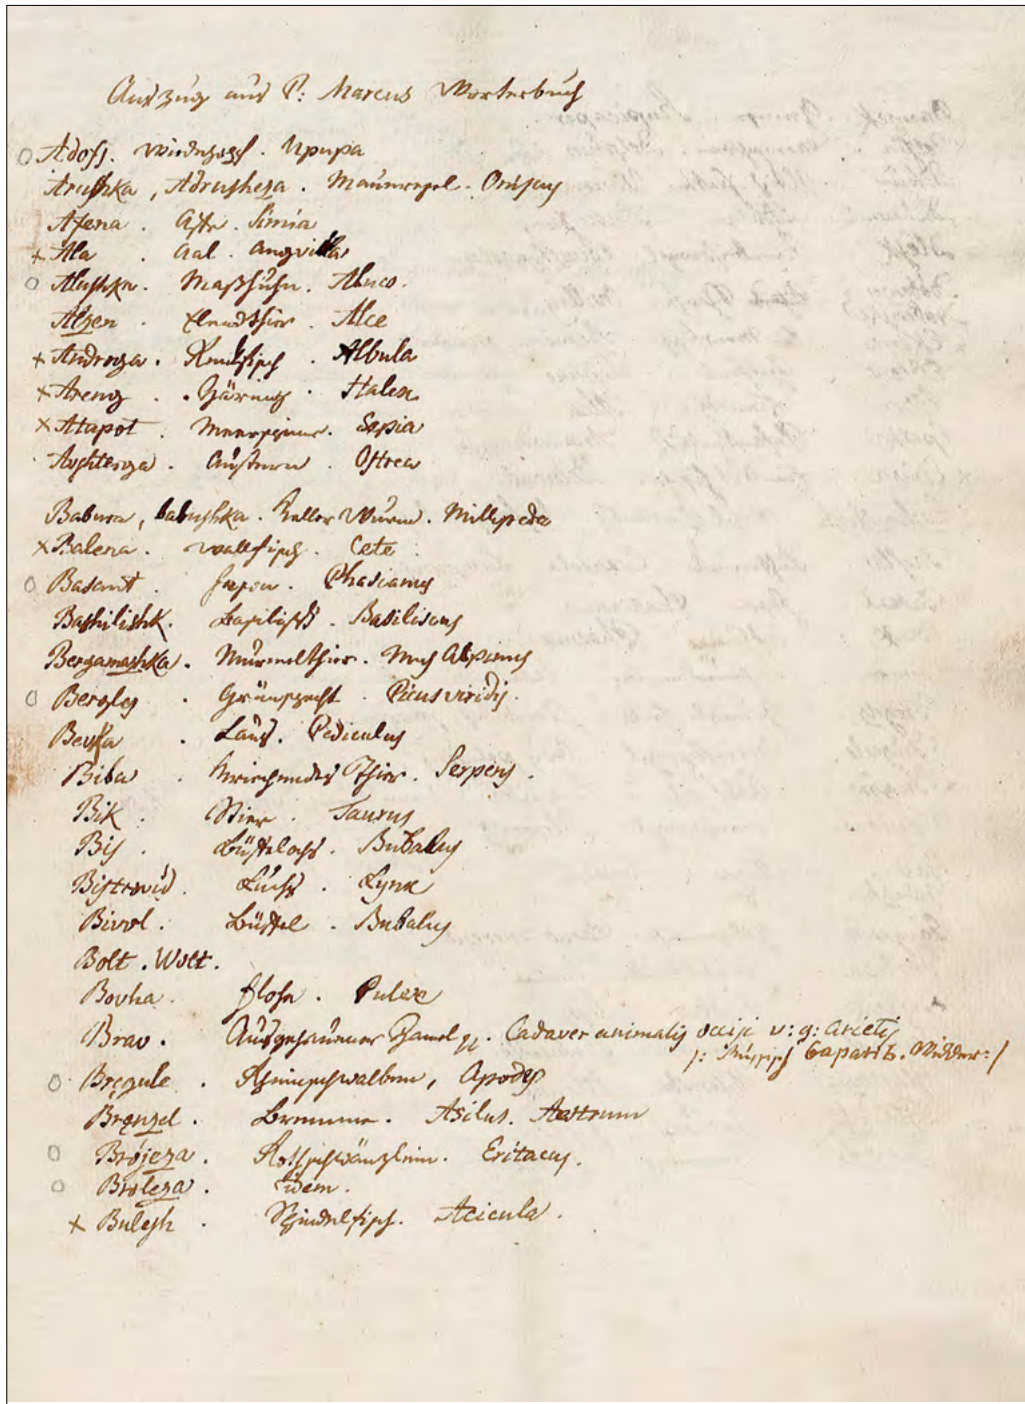 Auszug aus P: Marcus Worterbuch
O Adofj. Wiedehopf. Upupa
Arushka, Adrusheza. Maueresel. Oniscus
Afena. Affe. Simia
+ Ala. Aal. Angvilla
O Alushka. Maßhuhn. Aluco.
Alzen. Elendthier. Alce
+ Androga. Albula
× Areng. Häring. Halex
× Atapot. Sepia
Aushteriga. Austern. Ostrea
Babura, babushka. Keller Wurm. Millepeda
× Balena. Wallfisch. Cete
O Basant. Fasan. Phasianus
Bashilishk. Basilisk. Basiliscus
Bergamashka. Murmelthier. Mus Alpinus
O Bergles. Grünspecht. Picus viridis.
Laus. Pediculus
Biba. kriechendes Thier. Serpens.
Bik. Stier. Taurus
Bis. Büffelochs. Bubalus
Bistrovid. Luchs. Lynx
Bivol. Büffel. Bubalus
Bolt. Wolt.
Bovha. Flohe. Pulex
Brav. Ausgehauener Hamel pp. Cadaver animalis occisi v: g: arietis
/: Widder :/
O Bregule. Rheinschwalben, Apodes
Brenzel. Bremme. Asilus. Aestrum
O Brojeza. Rothschwänzlein. Eritacus.
O Broleza. Idem.
× Bulesh. Spindelfisch. Acicula.